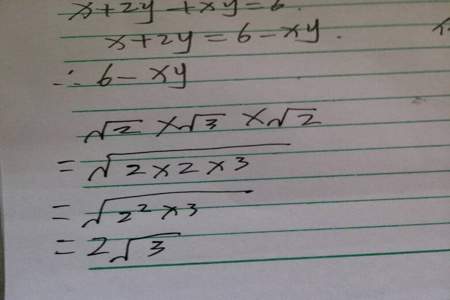 x+2y+xy=6.
x+2y=6-xy.
∴ 6-xy
√2 ×√3 ×√2
=√2×2×3
=√2²×3
=2√3